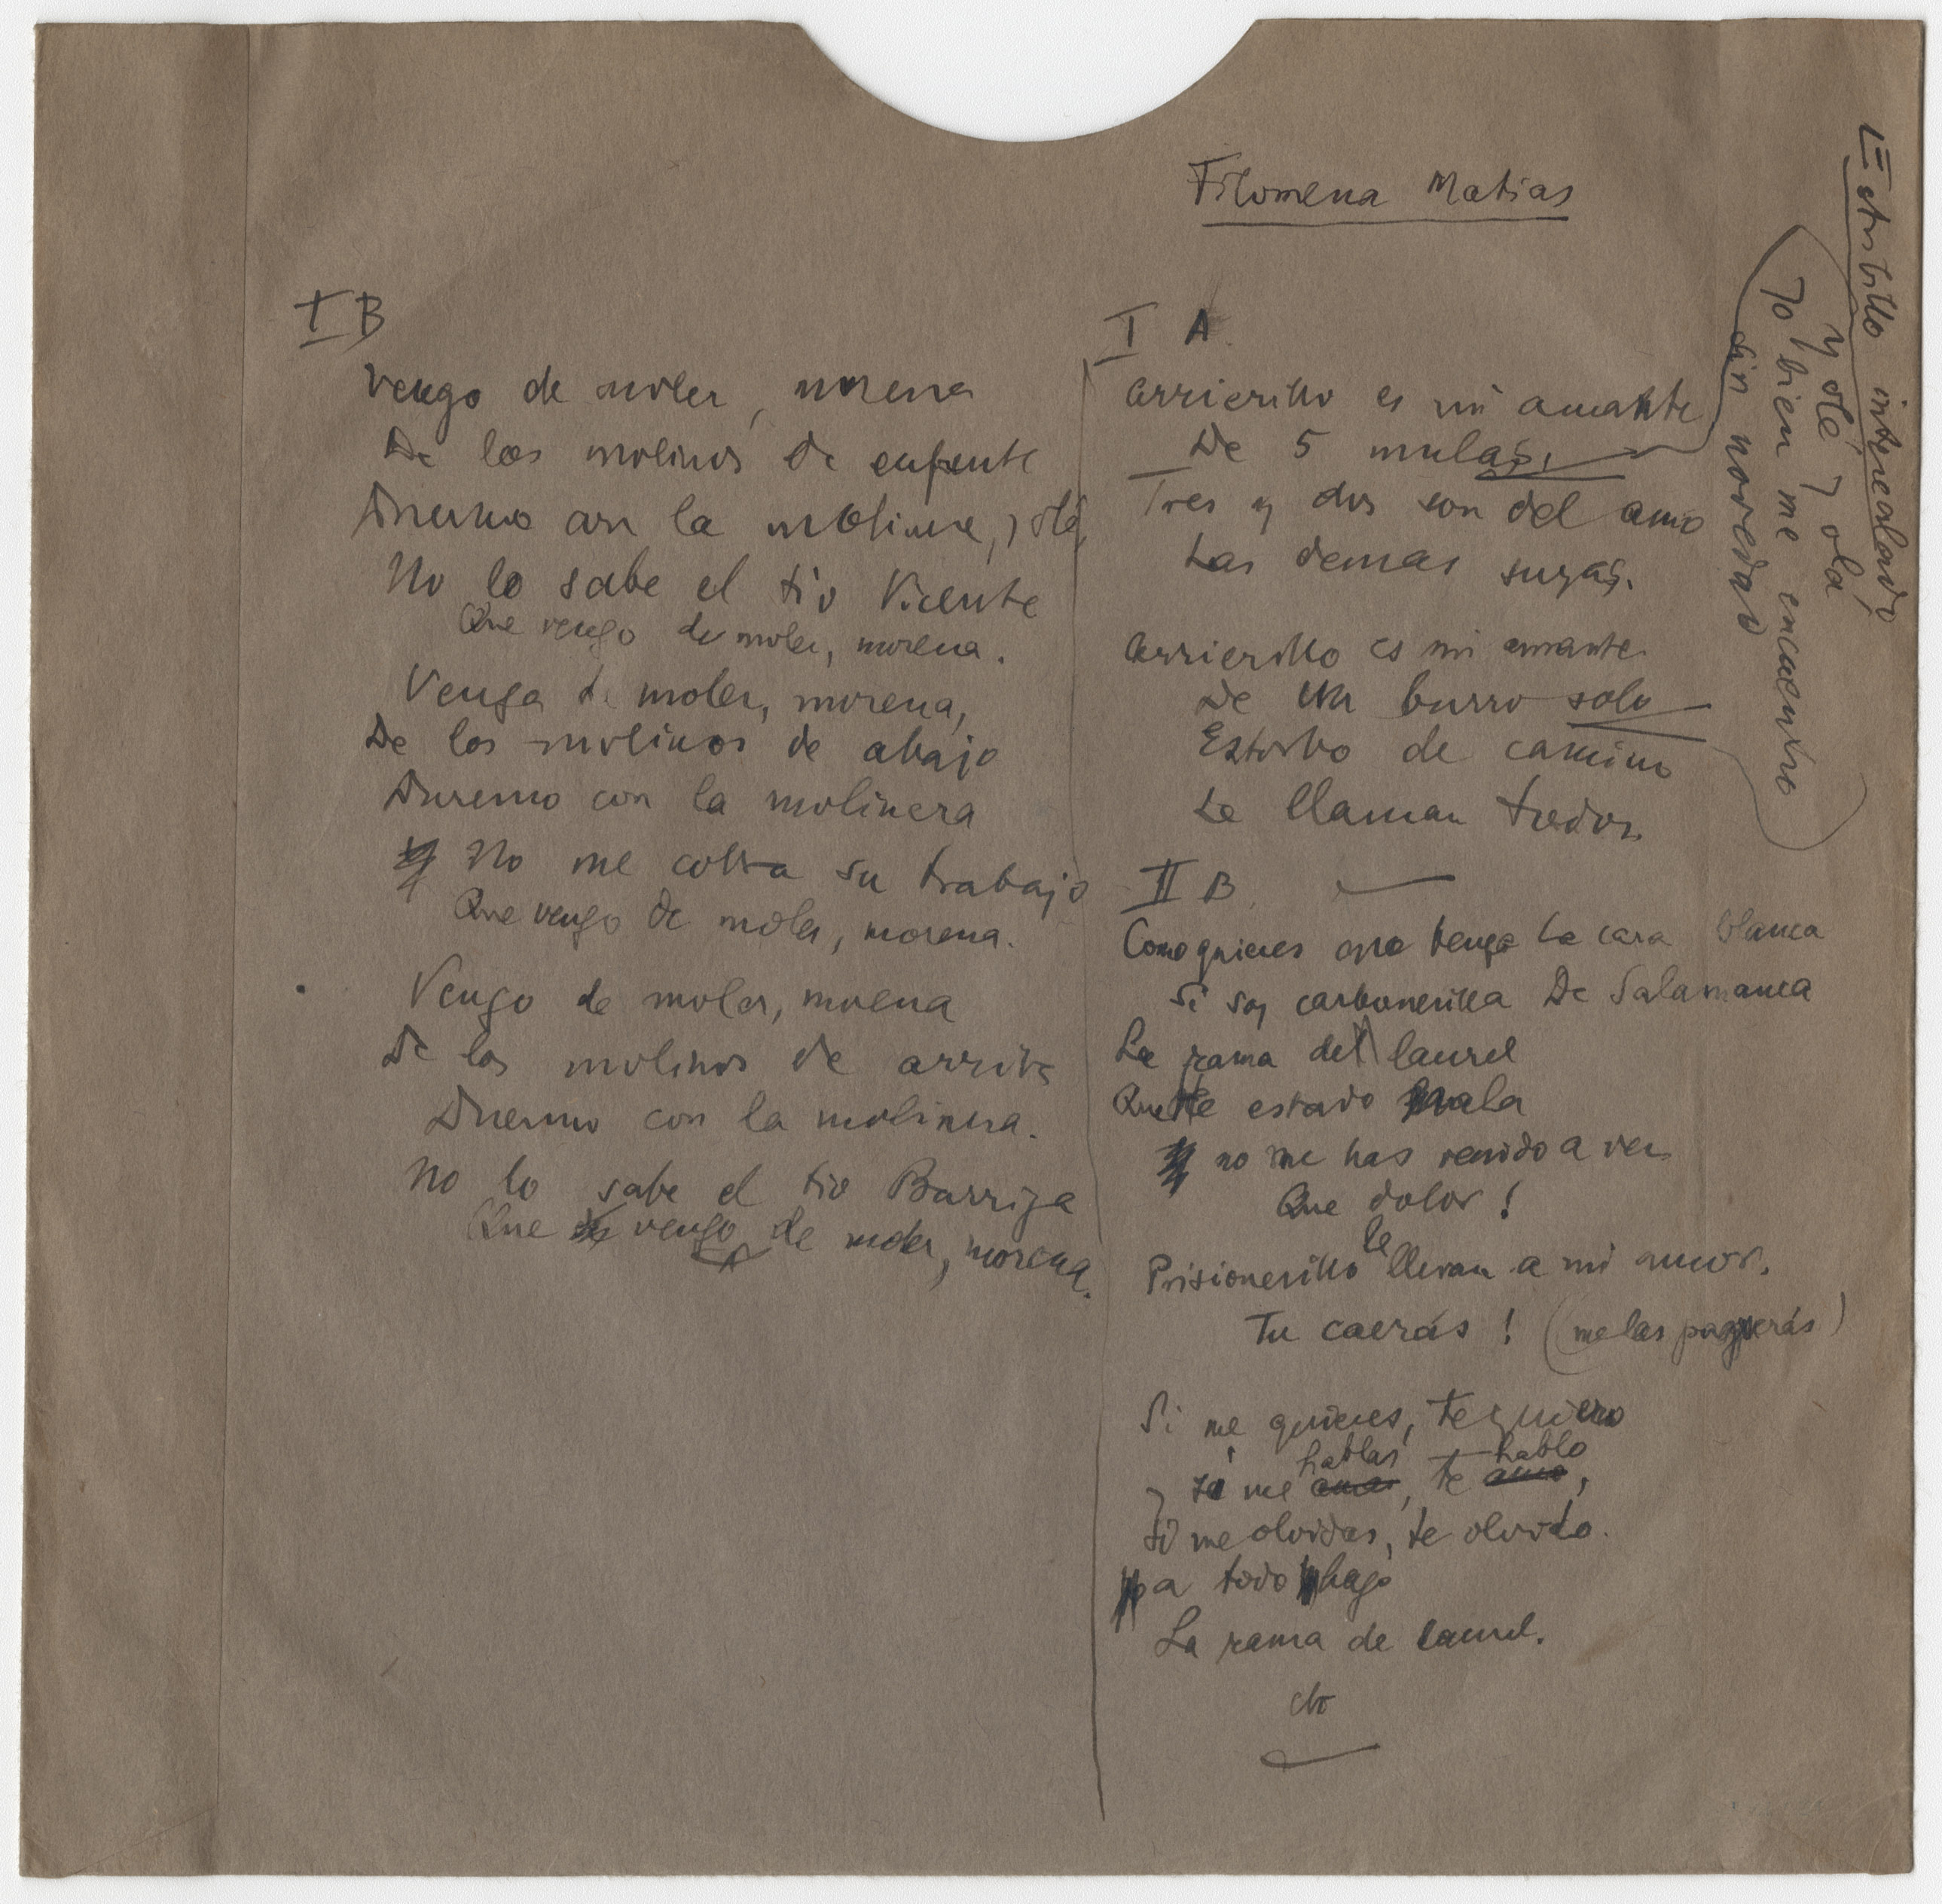 Filomena Matias
I A
Arrierillo es mi amante
De 5 mulas,
Tres y dos son del amo
Las demas suyas.
Arrierillo es mi amante
De un burro solo
Estorbo de camino
Le llaman todos
II B
Como quieres que tenga la cara blanca
Si soy carbonerilla De Salamanca
La rama del laurel
Que he estado mala
no me has venido a ver
Que dolor!
Prisionerillo le llevan a mi amor.
Tu caerás! (me las pagarás)
Si me quieres, te quiero
y si me amas, te amo,
hablas hablo
si me olvidas, te olvido.
a todo hago
La rama de laurel.
etc
Estribillo intercalado
y olé, y ola
Yo bien me encuentro
sin novedad
I B
Vengo de moler, morena
De los molinos de enfrente
Duermo con la molinera, y olé,
No lo sabe el tio Vicente
Que vengo de moler, morena.
Vengo de moler, morena,
De los molinos de abajo
Duermo con la molinera
No me cobra su trabajo
Que vengo de moler, morena.
Vengo de moler, morena
De los molinos de arriba
Duermo con la molinera.
No lo sabe el tio Barriga
Que vengo de moler, morena.